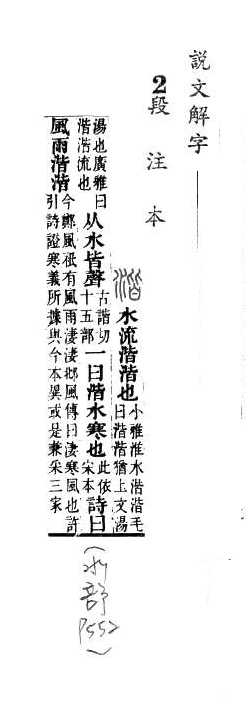 説文解字
2段注本
湝 水流湝湝也 小雅淮水湝湝毛
曰湝湝猶上文湯
湯也廣雅曰
湝湝流也
从水皆聲 古諧切
十五部
一曰湝水寒也 此依
宋本
詩曰
風雨湝湝 今鄭風祗有風雨淒淒邶風傳曰淒寒風也許
引詩證寒義所據與今本異或是兼采三家
(水部P552)